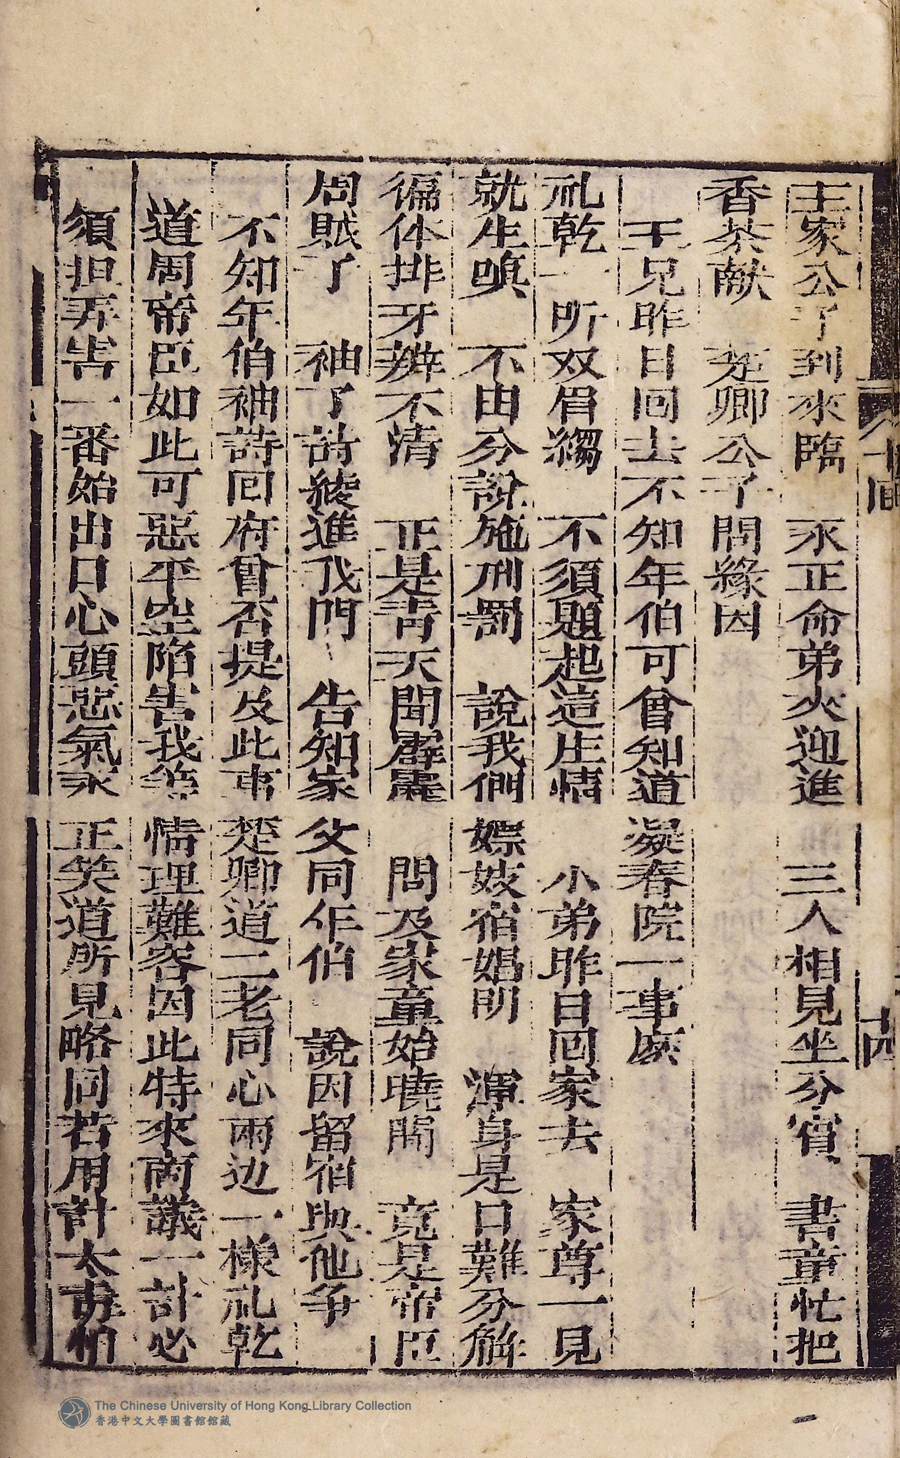 王家公子到來臨　永正命弟來迎進　三人相見坐分賓　書童忙把
香茶献　楚卿公子問緣因
王兄昨日回去不知年伯可曾知道凝春院一事庅
礼乾一听双眉縐　不須題起這庄情　小弟昨日回家去　家尊一見
就生嗔　不由分說施刑罰　說我們嫖妓宿娼明　渾身是口難分觧
徧体排牙辨不清　正是青天聞霹靂　問及家童始曉關　竟是帝臣
周賦了　袖了詩綾進我門　告知家父同年伯　說因留宿與他爭
不知年伯袖詩回府曾否提及此事楚卿道二老同心両边一様礼乾
道周帝臣如此可惡平空陷害我等情理難容因此特來商議一計必
須担弄害一番始出口心頭惡氣永正笑道所見略同若用計太毒怕
十四
The Chinese University of Hong Kong Library Collection
香港中文大學圖書館館藏